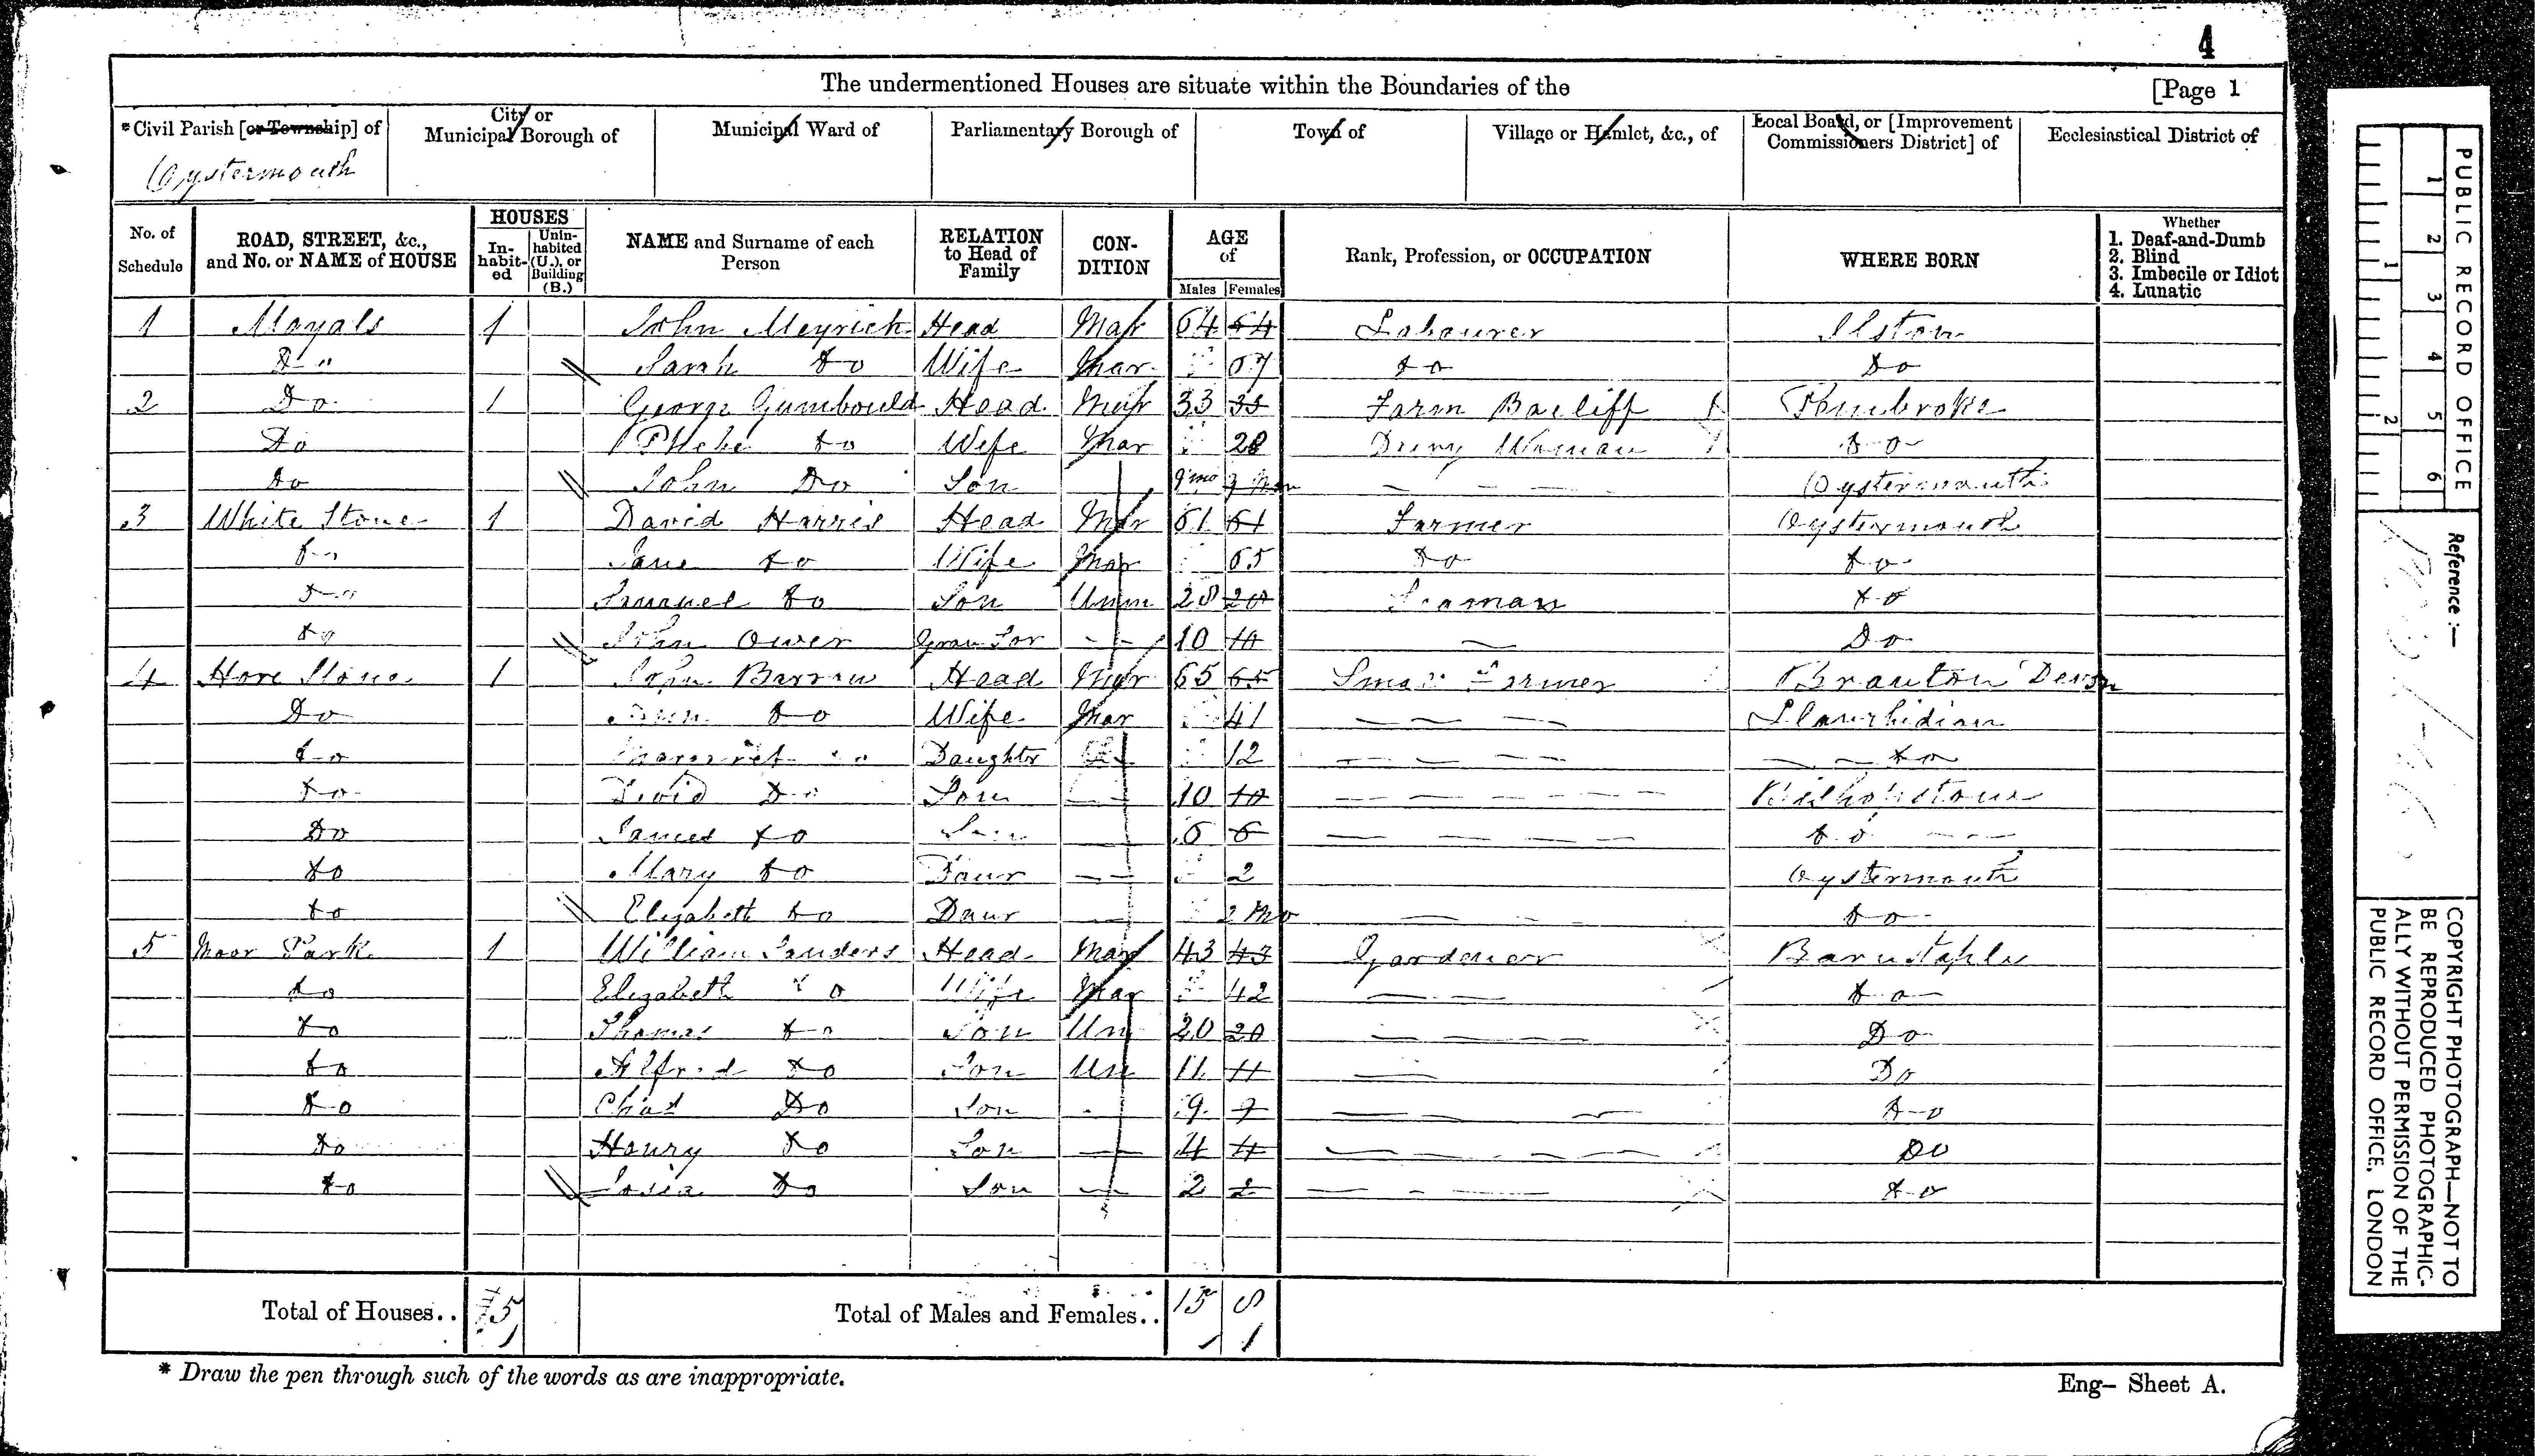 4
The undermentioned Houses are situate within the Boundaries of the [Page 1
*Civil Parish [or Township] of City or Municipal Borough of Municipal Ward of Parliamentary Borough of Town of Village or Hamlet, &c., of Local Board, or [Improvement Commissioners District] of Ecclesiastical District of
Oystermouth
No. of Schedule ROAD, STREET, &c., and No. or NAME of HOUSE HOUSES In-habit-ed Unin-habited (U.), or Building (B.) NAME and Surname of each Person RELATION to Head of Family CON-DITION AGE of Males Females Rank, Profession, or OCCUPATION WHERE BORN Whether 1. Deaf-and-Dumb 2. Blind 3. Imbecile or Idiot 4. Lunatic
1 Mayals 1 John Meyrick Head Mar 64 64 Labourer Ilston
Do Sarah Do Wife Mar 67 Do Do
2 Do 1 George Gumbould Head Mar 33 33 Farm Bailiff Pembroke
Do Phebe Do Wife Mar 28 Do
Do John Do Son 9 mo 9 Mon Oystermouth
3 White Stone 1 David Harris Head Mar 61 61 Farmer Oystermouth
Do Jane Do Wife Mar 65 Do Do
Do Samuel Do Son Unm 28 28 Seaman Do
Do John Owen Gran Son 10 10 Do
4 Hore Stone 1 John Barrow Head Mar 65 65 Small Farmer Braunton Devon
Do Do Wife Mar 41 Llanrhidian
Do Margaret Do Daughter 12 Do
Do David Do Son 10 10 Bishopstone
Do James Do Son 6 6 Do
Do Mary Do Daur 2 Oystermouth
Do Elizabeth Do Daur 2 Mo Do
5 Moor Park 1 William Sanders Head Mar 43 43 Gardener Barnstaple
Do Elizabeth Do Wife Mar 42 Do
Do Thomas Do Son Un 20 20 Do
Do Alfred Do Son Un 11 11 Do
Do Chas Do Son 9 9 Do
Do Henry Do Son 4 4 Do
Do Do Son 2 2 Do
Total of Houses.. 5 Total of Males and Females.. 15 8
* Draw the pen through such of the words as are inappropriate. Eng- Sheet A.
PUBLIC RECORD OFFICE
1 2 3 4 5 6
1 2
Reference :—
COPYRIGHT PHOTOGRAPH—NOT TO
BE REPRODUCED PHOTOGRAPHIC-
ALLY WITHOUT PERMISSION OF THE
PUBLIC RECORD OFFICE, LONDON